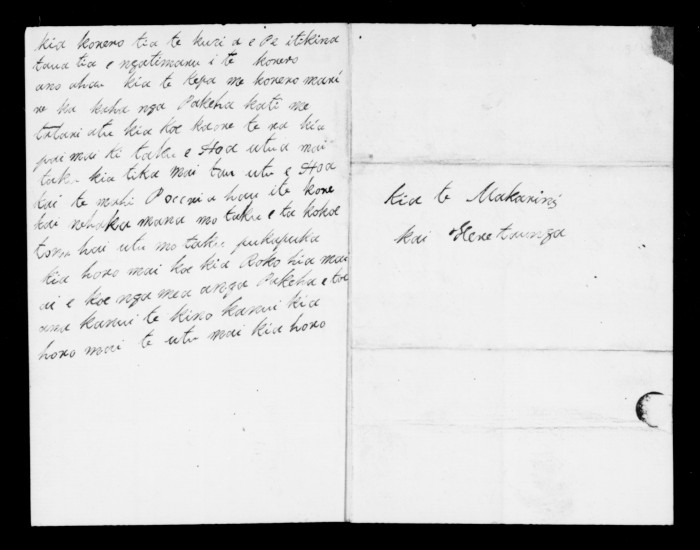 kia korero tia te kuri a e Pe itikina
taua tia e ngatimaru i te korero
ano ahau kia te Kepa me korero mari
re ka kaha nga Pakeha kati me
tatari atu kia koe kaore te ra kia
pai mai ki taku e Hoa utua mai
taku kia tika mai tau utu e Hoa
kai te mahi ahau ite kore
kai mana mo taku e ta kokoe
tonu hai utu mo taku pukapuka
kia horo mai koe kia Roko hia mai
ai e koe nga mea anga Pakeha e toe
ana kanui te kino kanui kia
horo mai te utu mai kia horo
kia te Makarini
kai Heretaunga